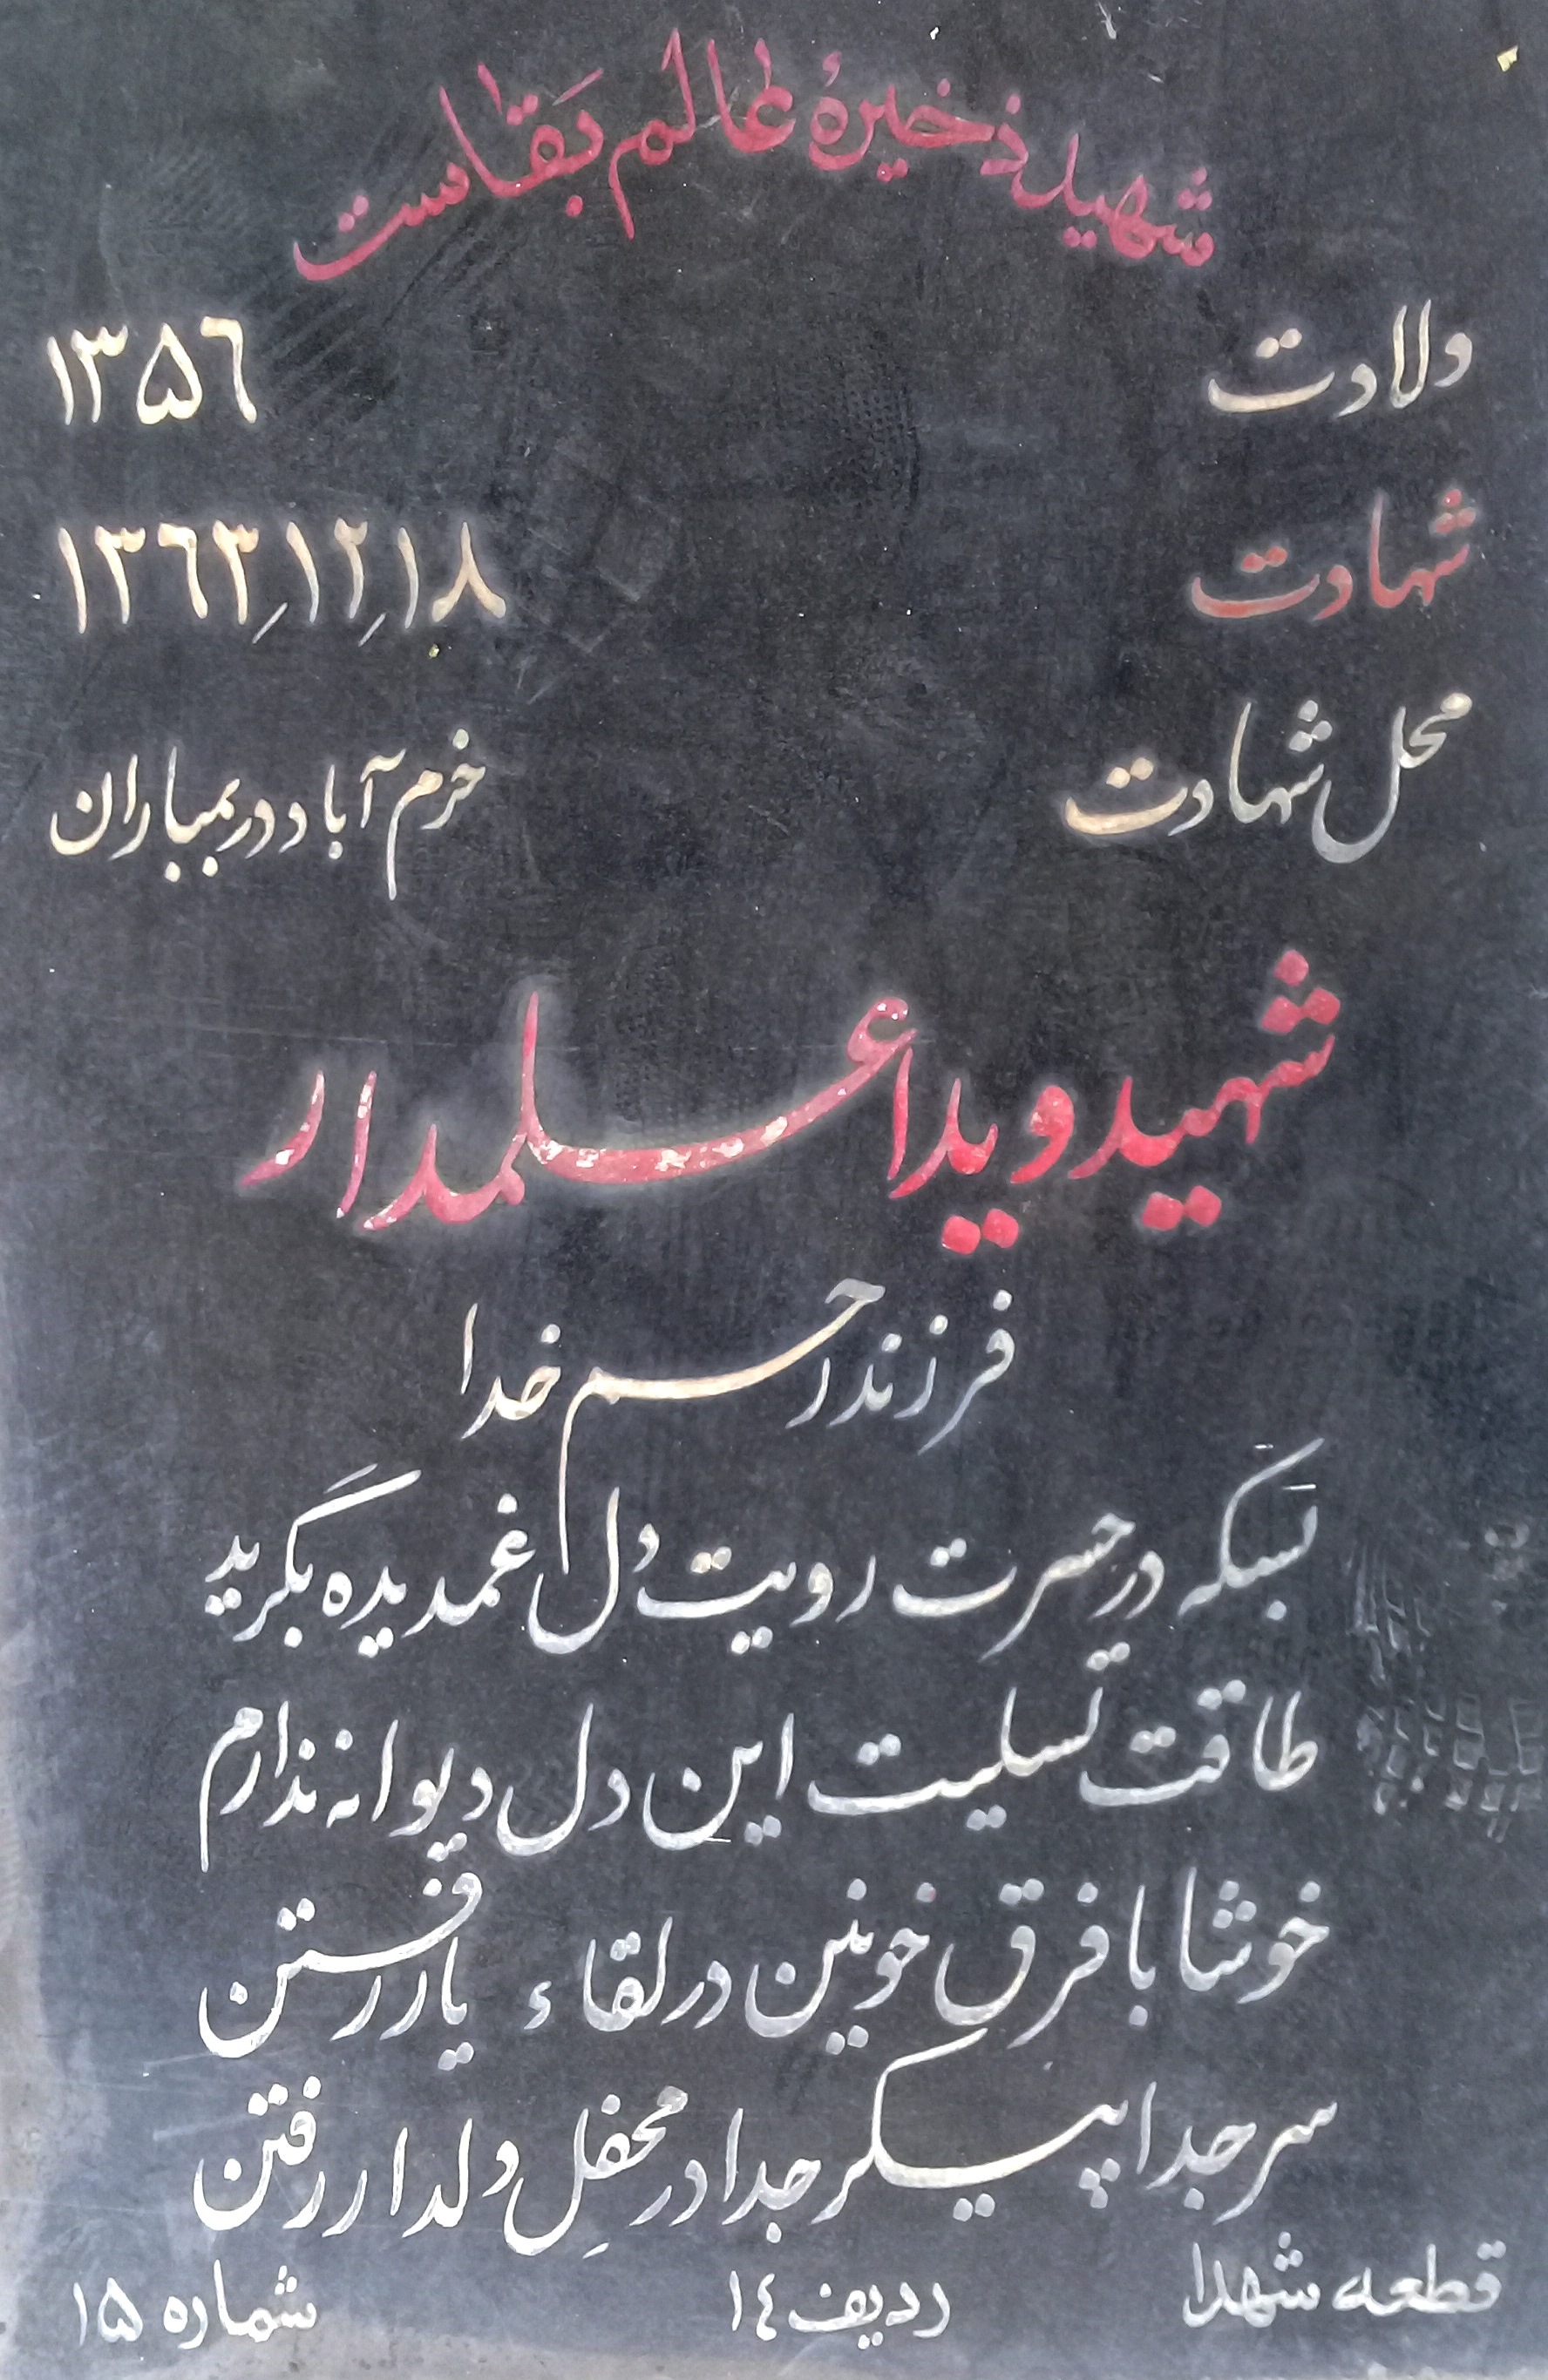 شهید ذخیرهٔ عالم بَقاست
ولادت ۱۳۵۶
شهادت ۱۳۶۳/۱۲/۱۸
محل شهادت خرم آباد در بمباران
شهید ویدا علمدار
فرزند رحم خدا
بَسکه در حسرت رویت دل غمدیده بگرید
طاقت تسلیت این دل دیوانه ندارم
خوشا با فرق خونین در لقاء یار رفتن
سر جدا پیکر جدا در محفلِ دلدار رفتن
قطعه شهدا ردیف ۱۴ شماره ۱۵